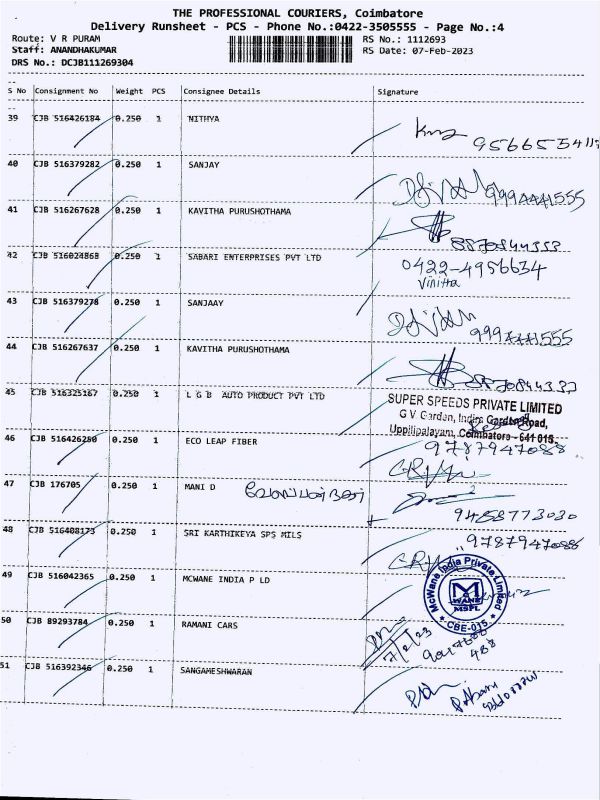 THE PROFESSIONAL COURIERS, Coimbatore
Delivery Runsheet - PCS - Phone No.:0422-3505555 - Page No.:4
Route: V R PURAM RS No.: 1112693
Staff: ANANDHAKUMAR RS Date: 07-Feb-2023
DRS No.: DCJB111269304
S No Consignment No Weight PCS Consignee Details Signature
39 CJB 516426184 0.250 1 NITHYA
40 CJB 516379282 0.250 1 SANJAY 9994441555
41 CJB 516267628 0.250 1 KAVITHA PURUSHOTHAMA
8870844333
42 CJB 516024868 0.250 1 SABARI ENTERPRISES PVT LTD 0422-4956634
Vinitha
43 CJB 516379278 0.250 1 SANJAAY
9994441555
44 CJB 516267637 0.250 1 KAVITHA PURUSHOTHAMA
45 CJB 516325167 0.250 1 L G B AUTO PRODUCT PVT LTD SUPER SPEEDS PRIVATE LIMITED
G V Garden, Indira Garden Road,
Uppilipalayam, Coimbatore - 641 015.
46 CJB 516426250 0.250 1 ECO LEAP FIBER 9787947088
47 CJB 176705 0.250 1 MANI D
9488773030
48 CJB 516408173 0.250 1 SRI KARTHIKEYA SPS MILS 9787947088
49 CJB 516042365 0.250 1 MCWANE INDIA P LD McWane India Private Limited
M
WANE
MSPL
CBE-015
50 CJB 89293784 0.250 1 RAMANI CARS 7/2/23
51 CJB 516392346 0.250 1 SANGAMESHWARAN